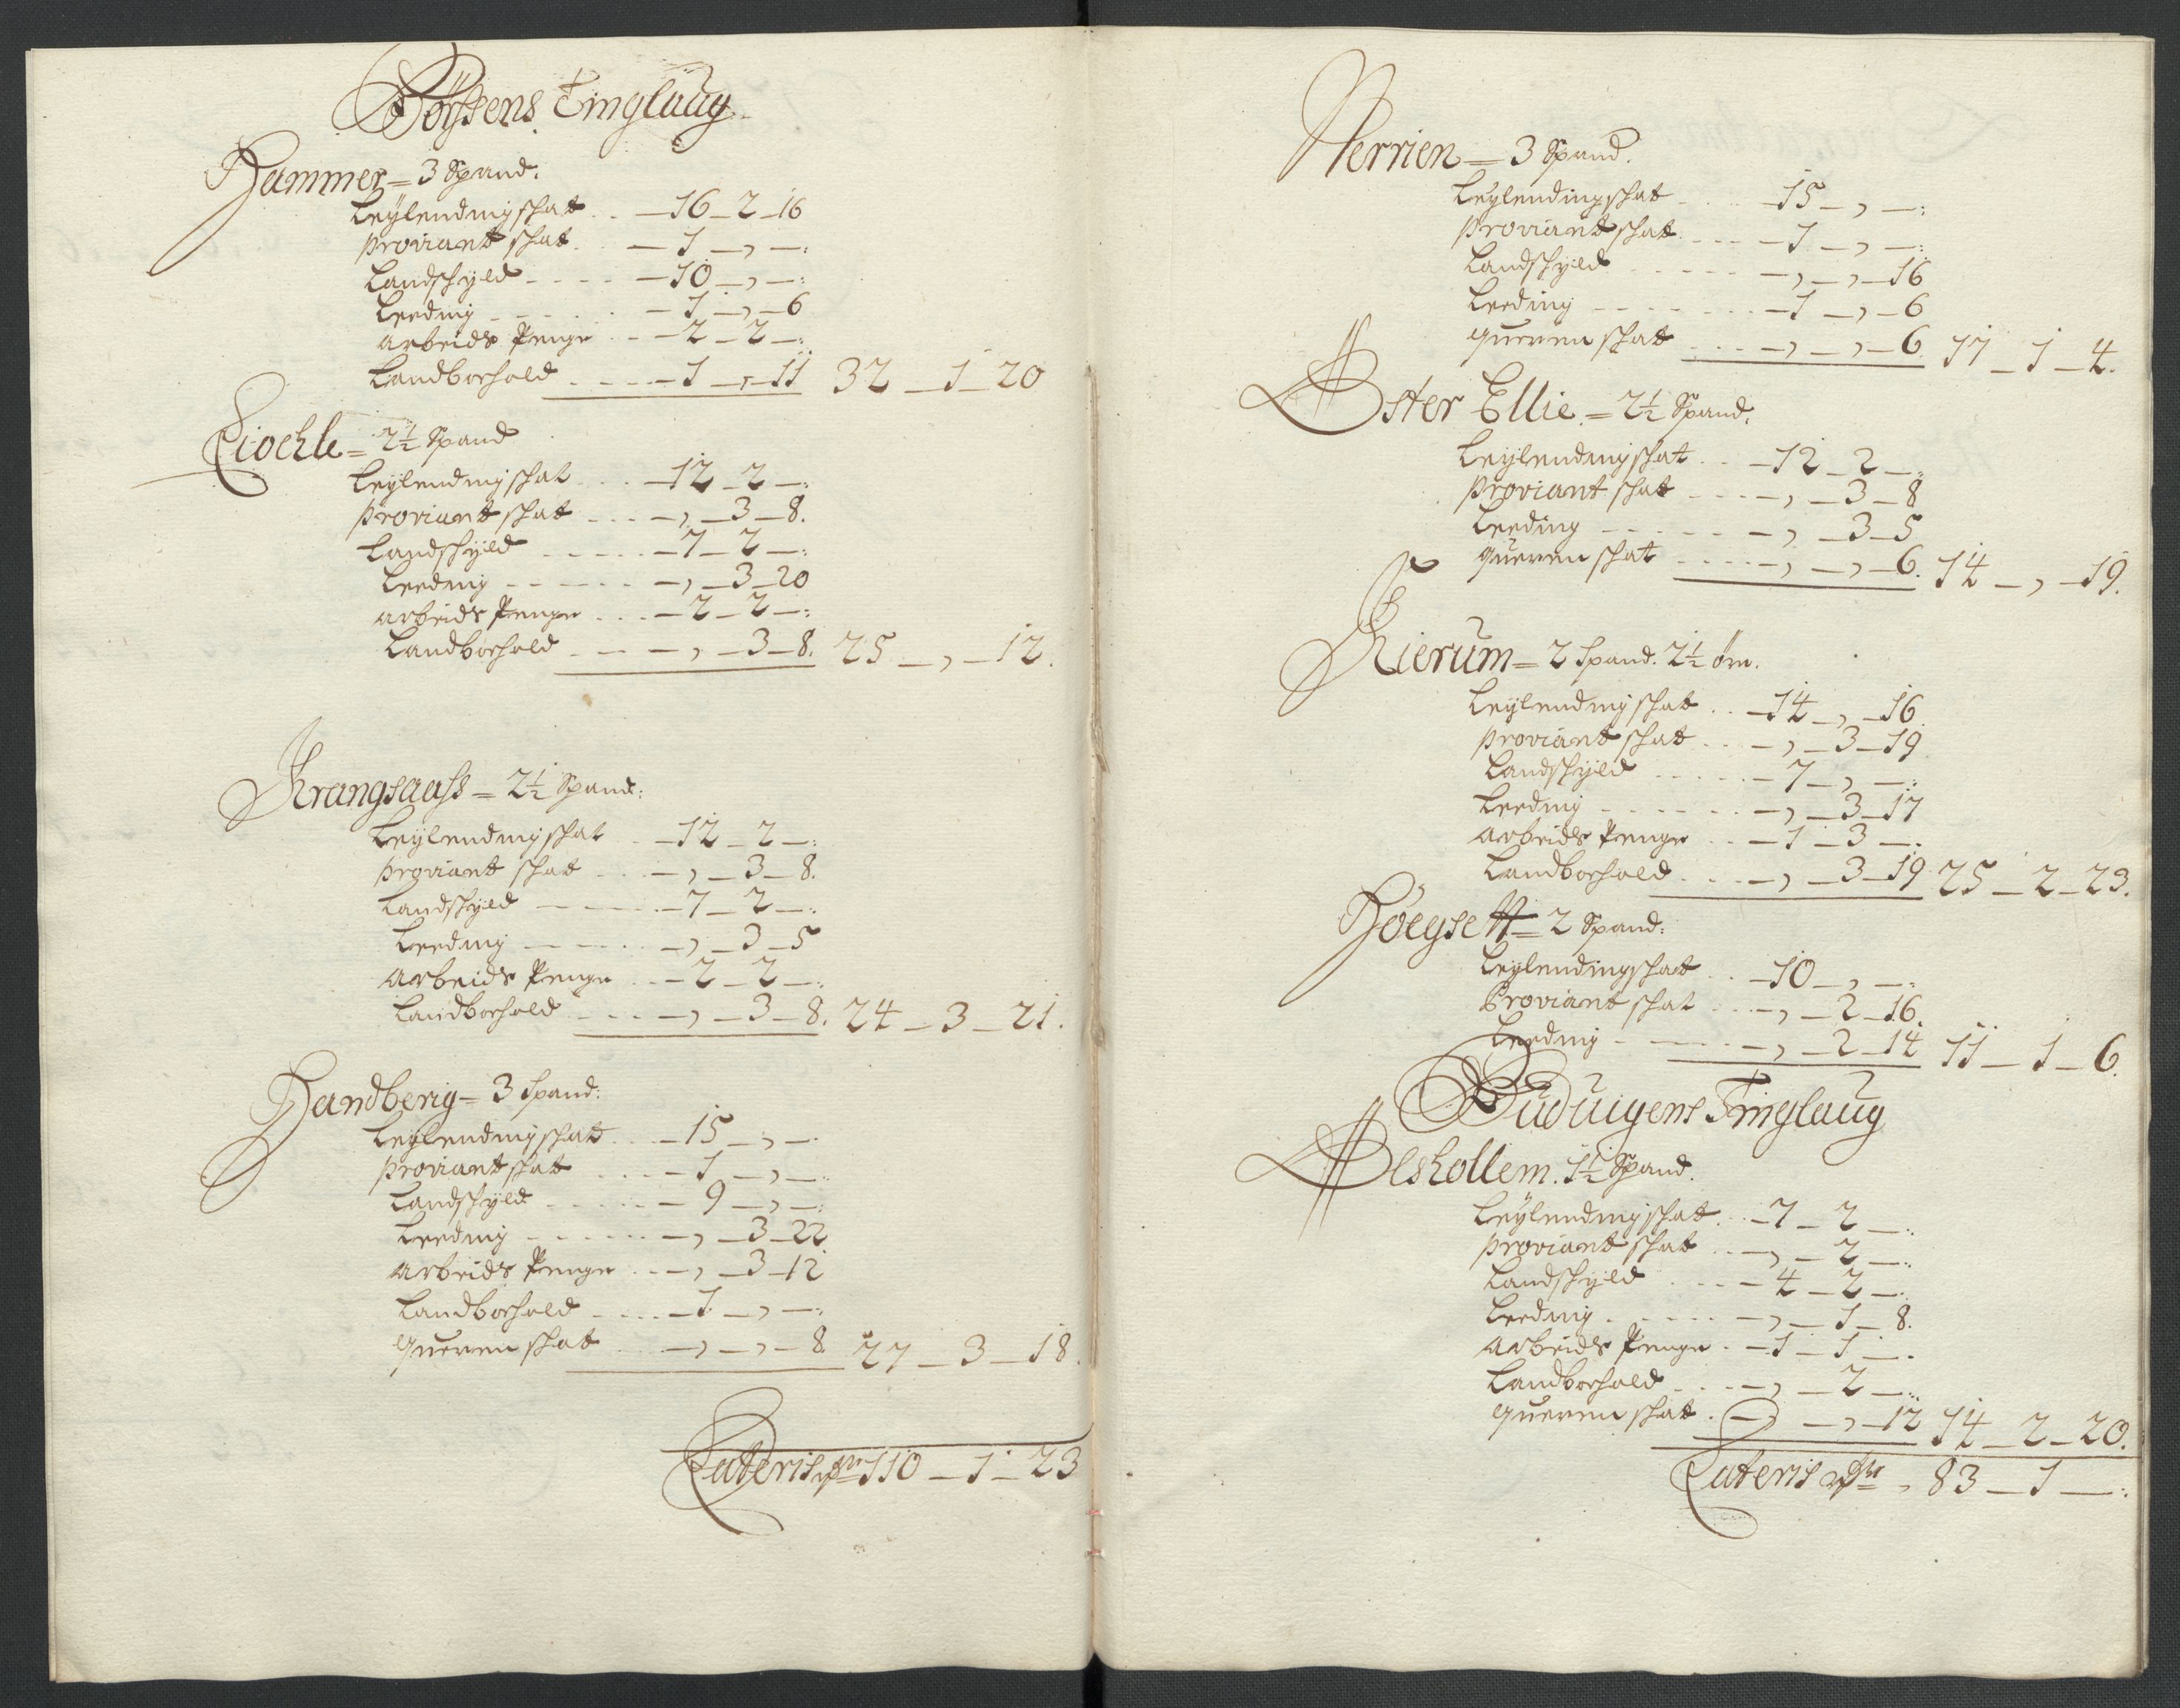 Börssens Tinglaug
Hammer = 3 Spand:
Leÿlendingschat . . – 16 – 2 – 16
Proviant schat . . – 1 – , – :
Landschÿld . . . . – 10 – , – :
Leeding . . . . – 1 – , – 6
Arbeids Penge . . – 2 – 2 – :
Landbohold . . . . – 1 – , – 11 32 – 1 – 20
Eioehle = 2½ Spand
Leÿlendingschat . . . – 12 – 2 – :
Proviant schat . . . – , – 3 – 8.
Landschÿld . . . . . – 7 – 2 – :
Leeding . . . . . – , – 3 – 20
Arbeids Penge . . . – 2 – 2 – :
Landbohold . . . – , – 3 – 8. 25 – , – 12.
Krangsaass = 2½ Spand:
Leÿlendingschat . . – 12 – 2 – :
Proviant schat . . . – , – 3 – 8.
Landschÿld . . . . – 7 – 2 – :
Leeding . . . . . – , – 3 – 5
Arbeids Penge . . – 2 – 2 – :
Landbohold . . . – , – 3 – 8. 24 – 3 – 21.
Handberig = 3 Spand:
Leÿlendingschatt . . – 15 – , – :
Proviant schat . . . – 1 – , – :
Landschÿld . . . . . – 9 – , – :
Leeding . . . . . – , – 3 – 22
Arbeids Penge . . – , – 3 – 12
Landbohold . . . . – 1 – , – :
Queren schat . . – , – , – 8 27 – 3 – 18.
Lateris 110 – 1 – 23
Nerrien = 3 Spand.
Leÿlendingschat . . . – 15 – , – :
Proviant schat . . . – 1 – , – :
Landschÿld . . . . . – , – , – 16
Leeding . . . . . . – 1 – , – 6
Queren schat . . . – , – , – 6. 17 – 1 – 4.
Øster Ellie = 2½ Spand.
Leÿlendingschat . . – 12 – 2 – :
Proviant schat . . . – , – 3 – 8
Leeding . . . . . – , – 3 – 5
Queren schat . . . . – , – , – 6. 14 – , – 19.
Kierum = 2 Spand. 2½ øre.
Leÿlendingschat . . – 14 – , – 16.
Proviant schat . . . – , – 3 – 19
Landschÿld . . . . . – 7 – , – :
Leeding . . . . . . – , – 3 – 17
Arbeids Penge . . – 1 – 3 – .
Landbohold . . . – , – 3 – 19 25 – 2 – 23.
Höegsett = 2 Spand:
Leÿlendingschatt . . – 10 – , – :
Proviant schat . . . – , – 2 – 16.
Leeding . . . . . – , – 2 – 14 11 – 1 – 6.
Buduigens Tinglaug
Olshollem. 1½ Spand.
Leÿlendingschat . . – 7 – 2 – :
Proviant schat . . – , – 2 – :
Landschÿld . . . – 4 – 2 – :
Leeding . . . . . – , – 1 – 8.
Arbeids Penge . – 1 – 1 – .
Landbohold . . . – , – 2 – :
Queren schat . – , – , – 12 14 – 2 – 20.
Lateris , 83 – 1 – :